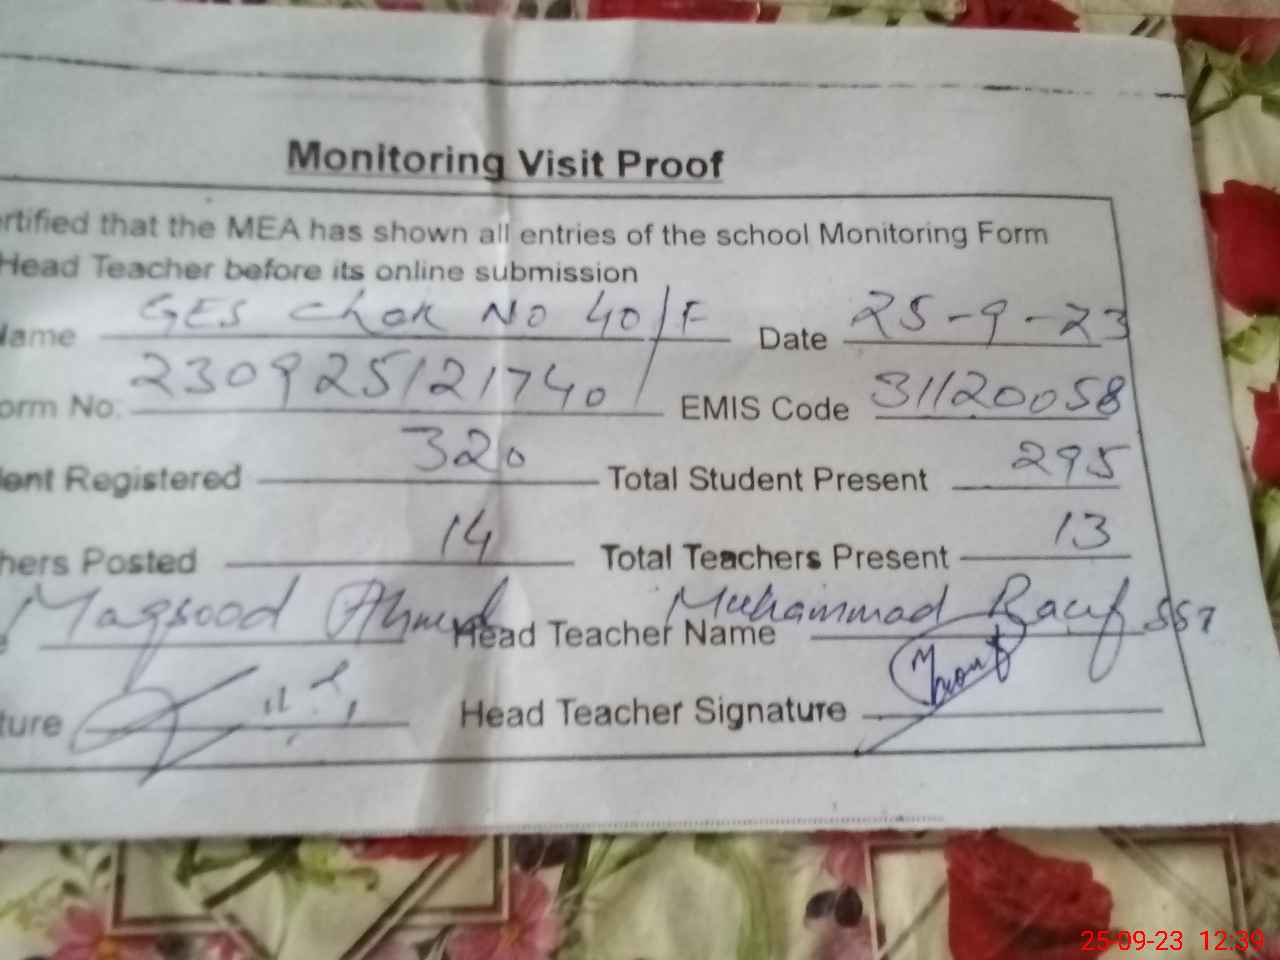 Monitoring Visit Proof
ertified that the MEA has shown all entries of the school Monitoring Form
Head Teacher before its online submission
Name GES Chak No 40/F Date 25-9-23
orm No. 230925121740 EMIS Code 31120058
dent Registered 320 Total Student Present 295
hers Posted 14 Total Teachers Present 13
Maqsood Ahmed Head Teacher Name Muhammad Rauf SST
ture Head Teacher Signature
25-09-23 12:39